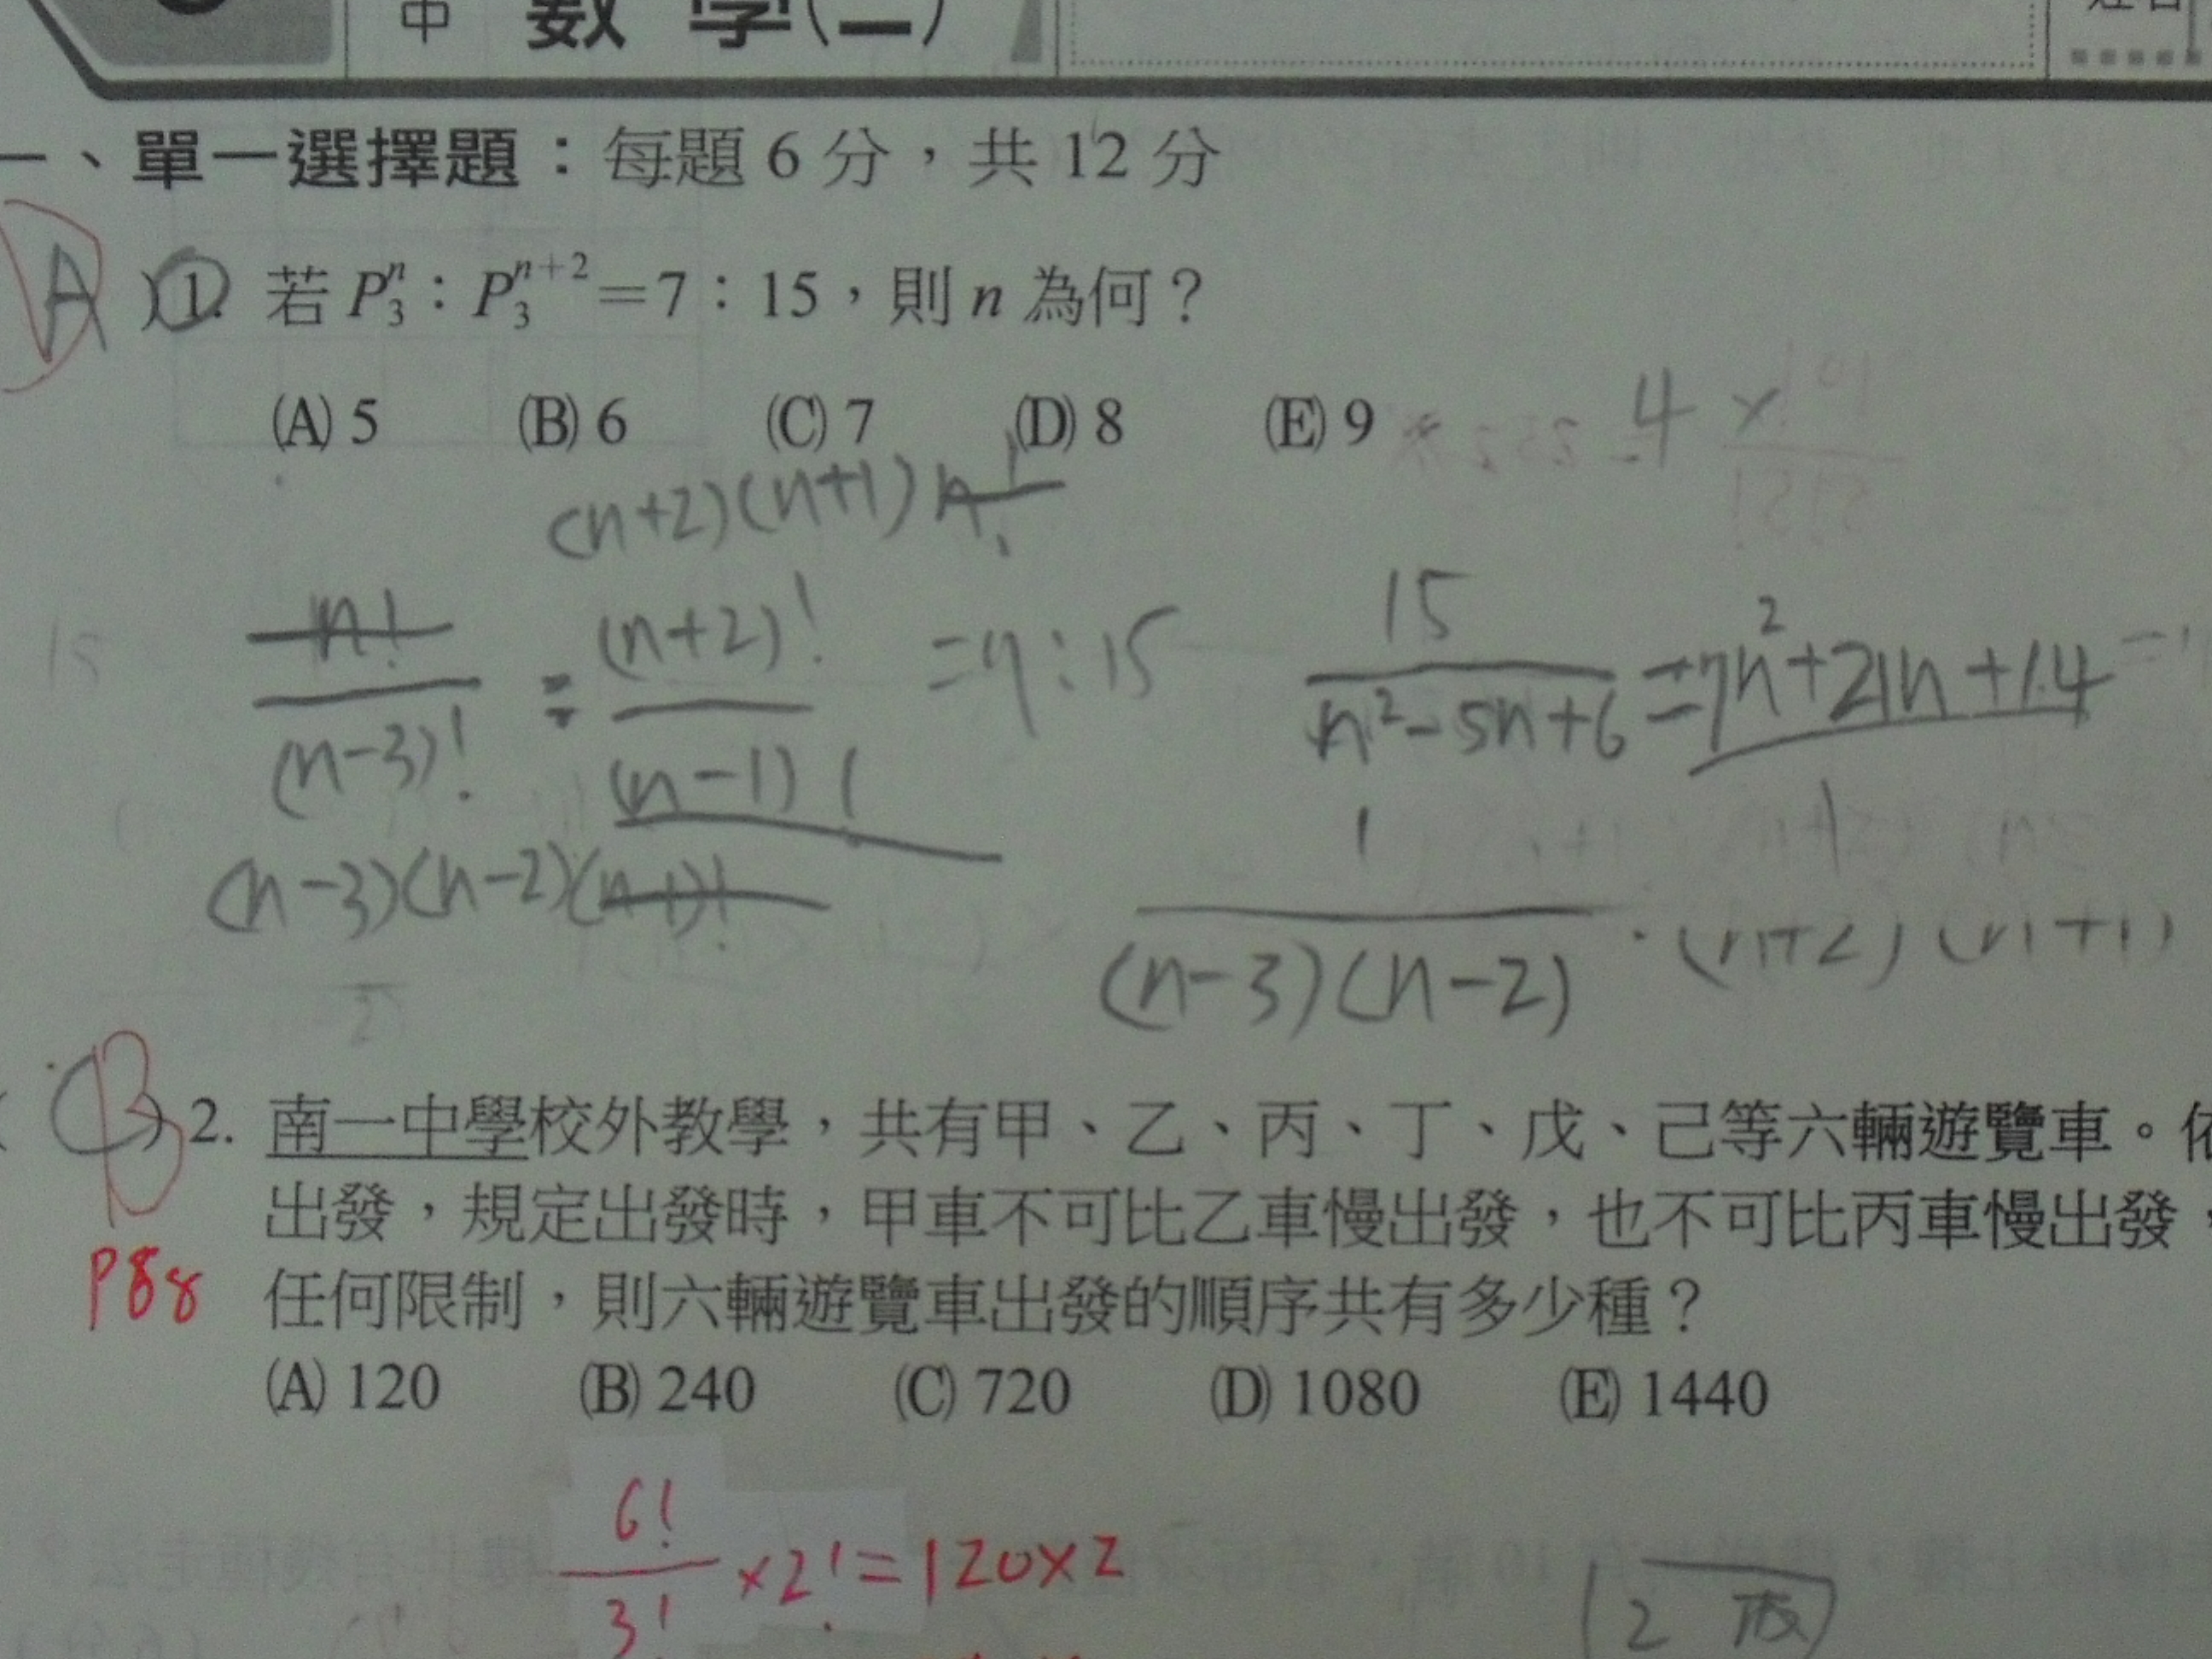 中 數 學(二)
一、單一選擇題：每題 6 分，共 12 分
A )1. 若 P₃ⁿ：P₃ⁿ⁺²＝7：15，則 n 為何？
(A) 5 (B) 6 (C) 7 (D) 8 (E) 9
(n+2)(n+1)n!
n!/(n-3)! : (n+2)!/(n-1)! =7:15
15/(n²-5n+6) = 7n²+21n+14
(n-3)(n-2)(n-1)!
1/((n-3)(n-2)) · (n+2)(n+1)
B )2. 南一中學校外教學，共有甲、乙、丙、丁、戊、己等六輛遊覽車。依
出發，規定出發時，甲車不可比乙車慢出發，也不可比丙車慢出發，
P88 任何限制，則六輛遊覽車出發的順序共有多少種？
(A) 120 (B) 240 (C) 720 (D) 1080 (E) 1440
6!/3! ×2! = 120×2